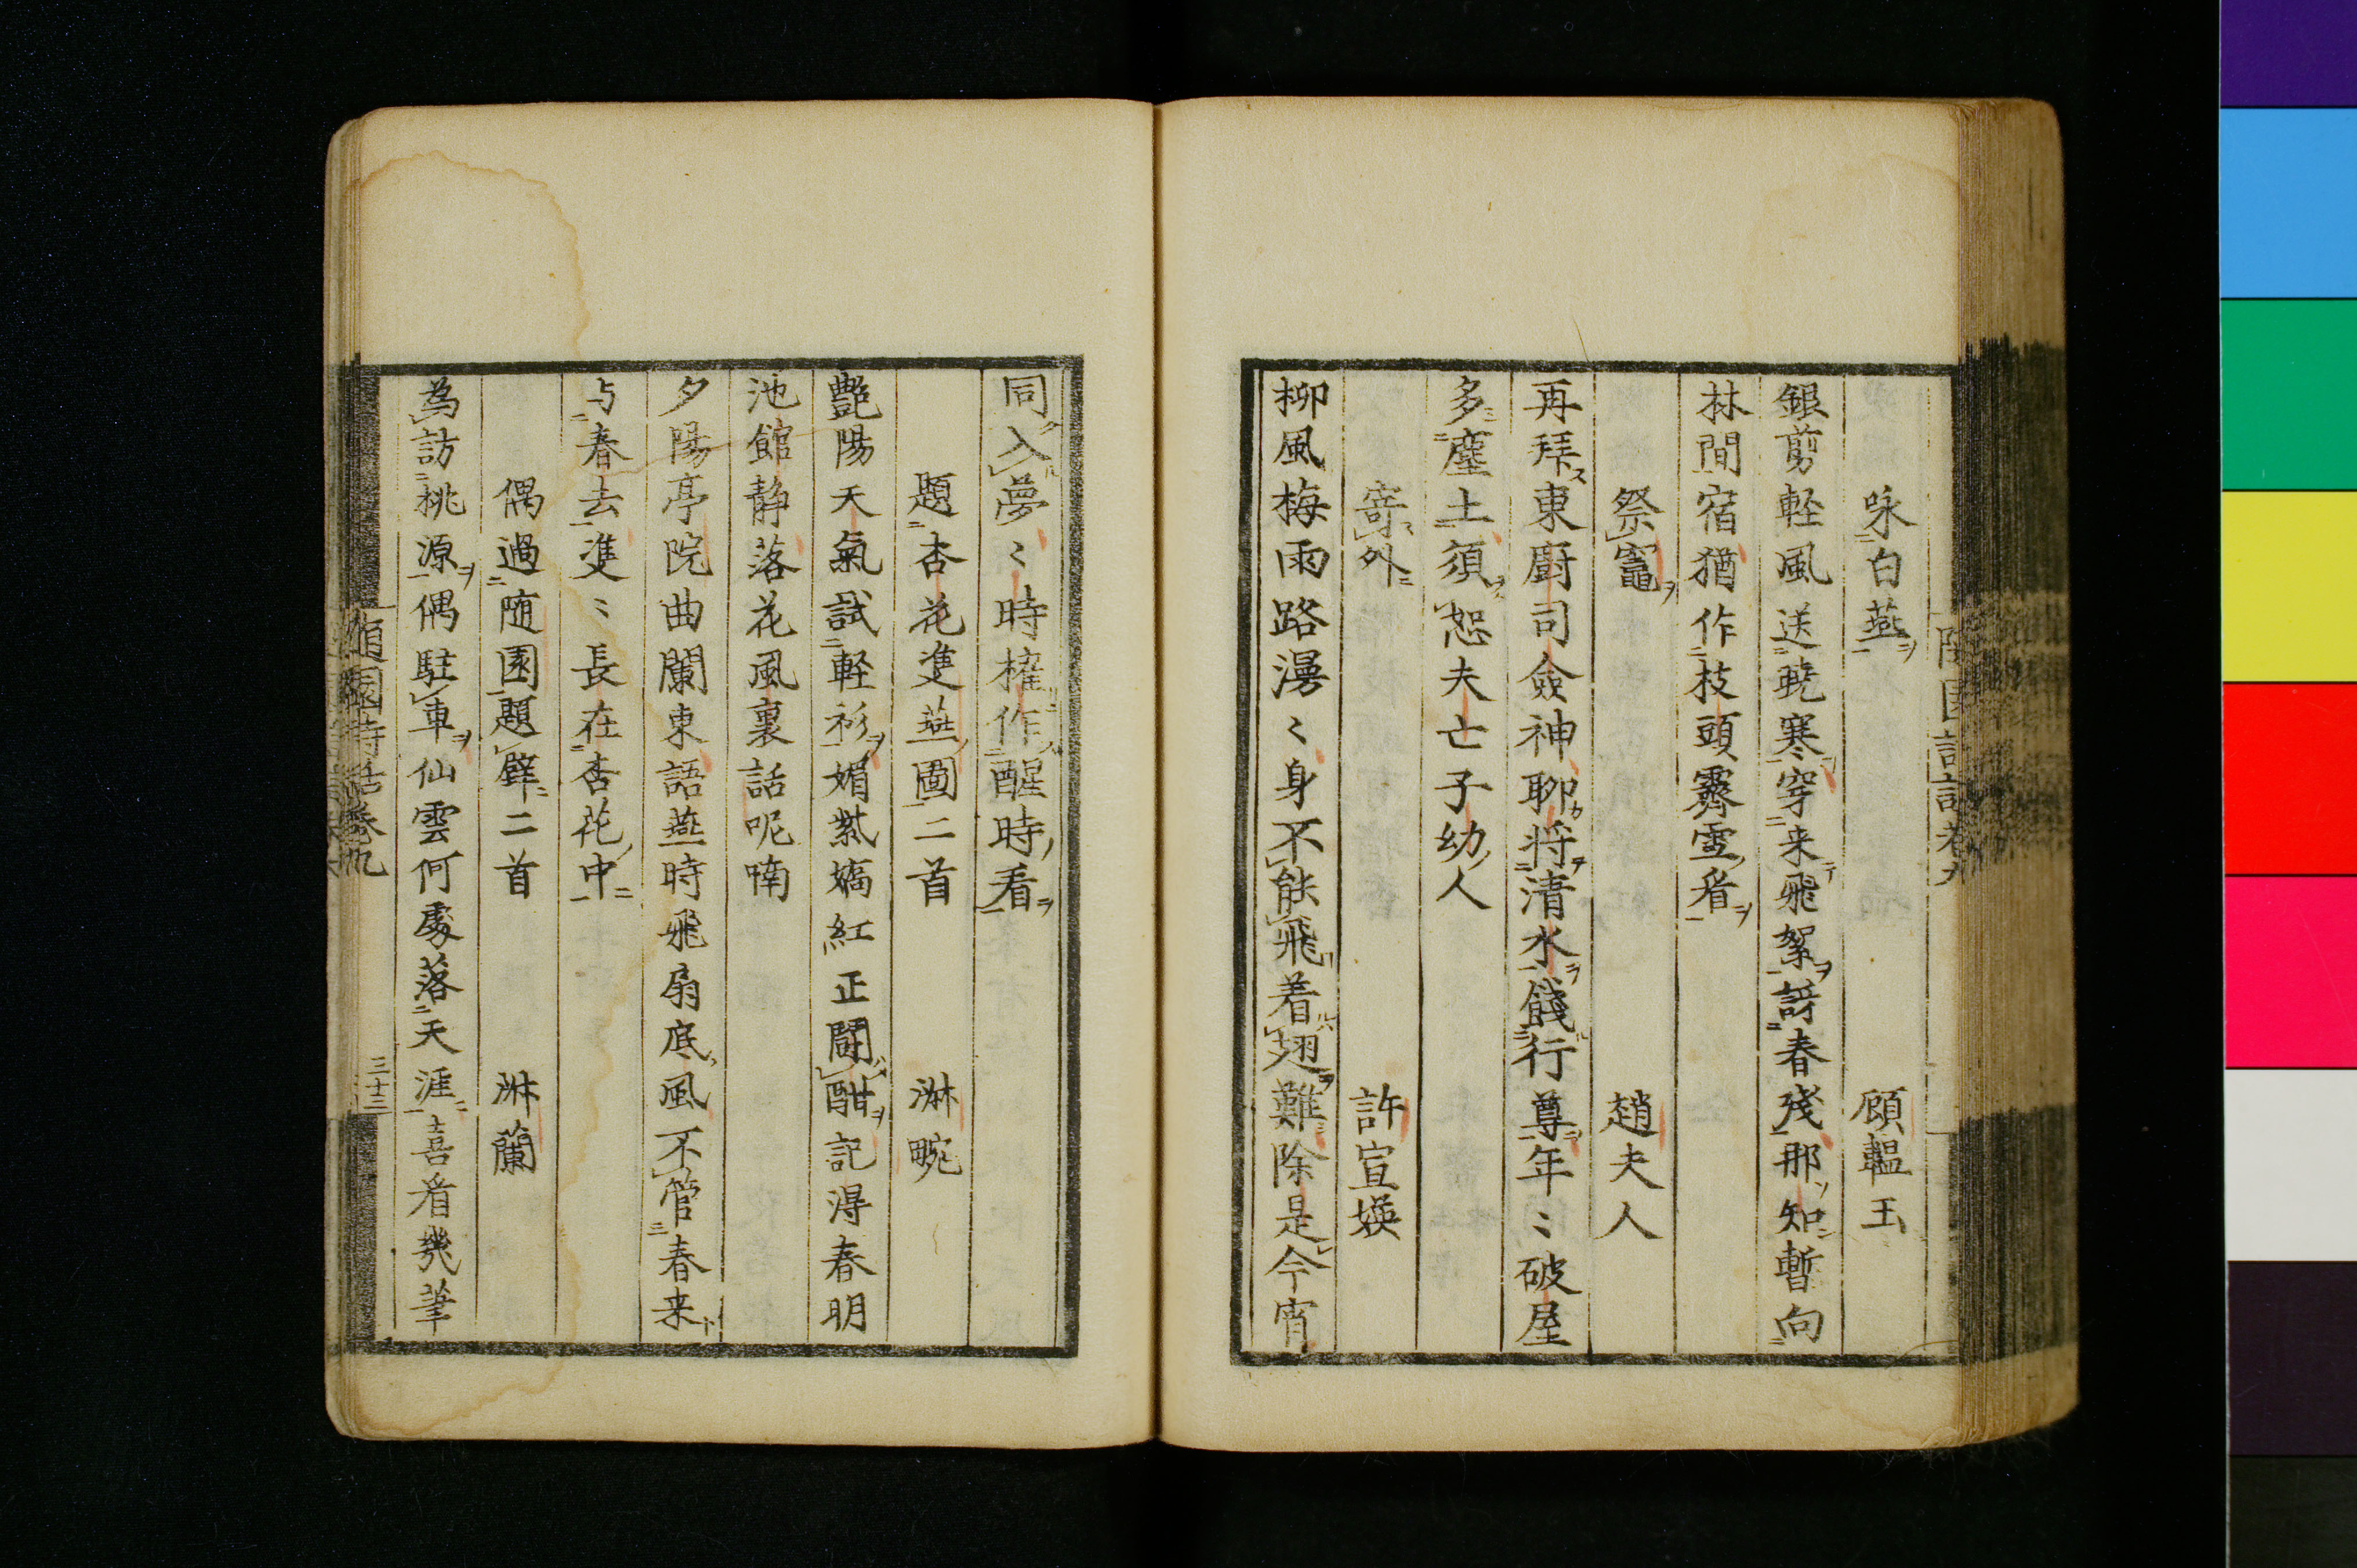 咏白燕 顧韞玉
銀剪軽風送暁寒穿来飛絮訝春残那知暫向
林間宿猶作枝頭霽雪看
祭竈 趙夫人
再拜東廚司僉神聊将清水餞行尊年〻破屋
多塵土須恕夫亡子幼人
寄外 許宣媖
柳風梅雨路漫〻身不能飛着翅難除是今宵
同入夢〻時権作醒時看
題杏花雙燕圖二首 淋畹
艶陽天氣試軽衫媚紫嬌紅正闘酣記得春明
池館静落花風裏話呢喃
夕陽亭院曲闌東語燕時飛扇底風不管春来
与春去雙〻長在杏花中
偶過随園題壁二首 淋蘭
為訪桃源偶駐車仙雲何處落天涯喜看幾筆
随園詩話巻九
三十三